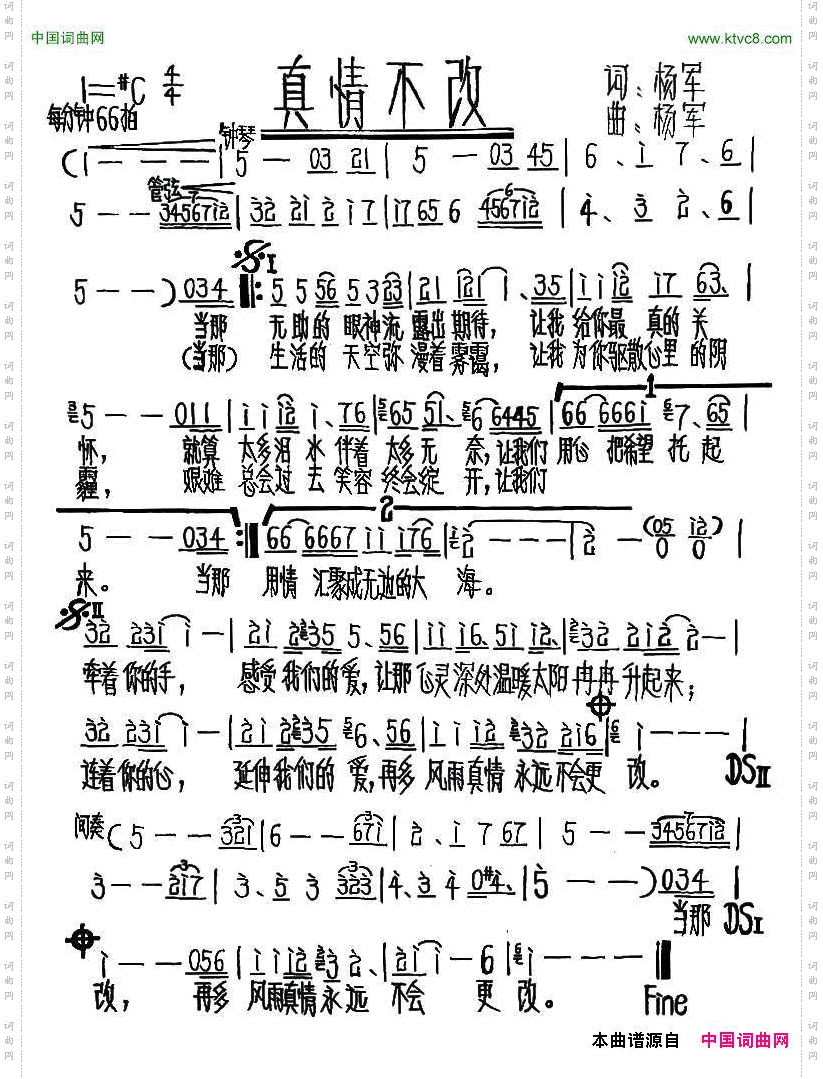 中国词曲网
www.ktvc8.com
真情不改
1=#C 4/4
每分钟66拍
词:杨军
曲:杨军
钟琴
(1 - - - | 5 - 03 21 | 5 - 03 45 | 6、i 7、6 |
管弦
5 - - 34567i2 | 32 21 2 i7 | i7 65 6 4567i2 | 4、3 2、6 |
𝄋I
5 - - ) 034 ‖: 5 5 56 5 323 | 21 i21 i、35 | i i i2 i7 63、|
当那 无助的 眼神流 露出期待, 让我 给你最 真的 关
(当那) 生活的 天空弥 漫着雾霭, 让我 为你驱散心里 的阴
1
5 - - 011 | i i i2 i、76 | 65 51、6 6445 | 66 666i 7、65 |
怀, 就算 太多泪 水 伴着 太多无 奈,让我们 用心 把希望 托 起
霾, 艰难 总会过 去 笑容 终会绽 开,让我们
2
5 - - 034 :‖ 66 6667 i i i76 | 2 - - - | 2 - (05 i2) |
0 0
来。 当那 用情 汇聚成无边的大 海。
𝄋II
32 23i i - | 2i 235 5、56 | i i i6、5i i2、| 32 2i2 2 - |
牵着 你的手, 感受 我们的爱,让那 心灵深处温暖太阳 冉冉 升起来;
32 23i i - | 2i 235 6、56 | i i i i2 32 2i6 | i - - - |
连着 你的心, 延伸我们的 爱,再多 风雨真情 永远不会更 改。
DSII
间奏 (5 - - 321 | 6 - - 67i | 2、i 7 67 | 5 - - 34567i2 |
3 - - 2i7 | 3、5 3 323 | 4、3 4 0#4、| 5 - - ) 034 |
当那 DSI
i - - 056 | i i i2 3 2、| 2i i - 6 | i - - - ‖
改, 再多 风雨真情永远 不会 更 改。 Fine
本曲谱源自 中国词曲网